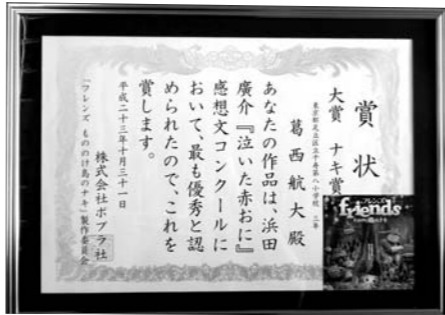 賞状
大賞 ナキ賞
東京都足立区立千寿第八小学校 三年
葛西航大殿
あなたの作品は、浜田
廣介『泣いた赤おに』
感想文コンクールに
おいて、最も優秀と認
められたので、これを
賞します。
平成二十三年十月三十一日
株式会社ポプラ社
「フレンズ もののけ島のナキ」製作委員会
friends